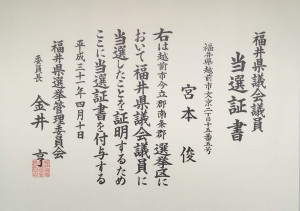 福井県議会議員
当選証書
福井県越前市文京二丁目十五番五号
宮本 俊
右は越前市今立郡南条郡選挙区に
おいて福井県議会議員に
当選したことを証明するため
ここに当選証書を付与する
平成三十一年四月十日
福井県選挙管理委員会
委員長 金井 亨